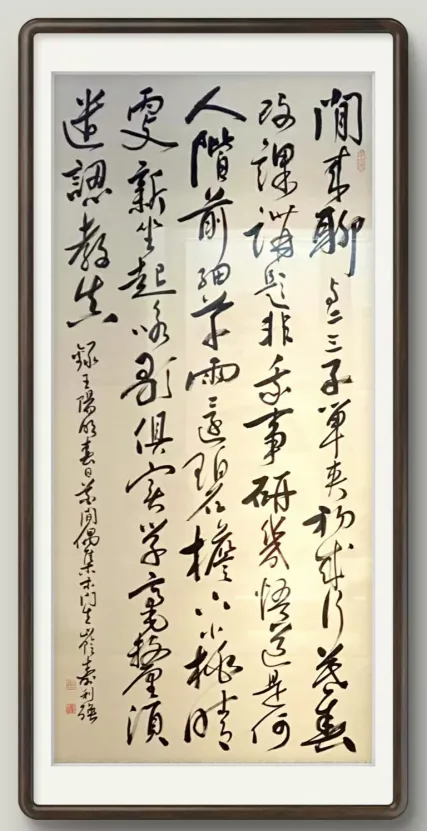 閒来聊与二三子單夾初成行暮春
改課講題非我事研幾悟道是何
人階前細草雨還碧檐下小桃晴
更新坐起咏歌俱實学毫釐須
遣認教真
録王陽明春日花間偶集示門生